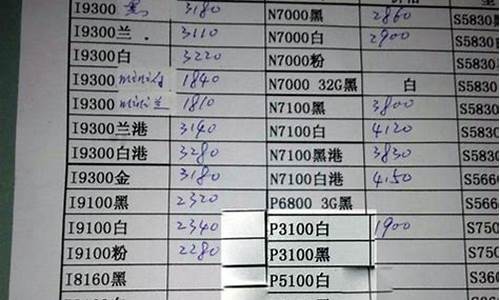 I9300 黑 3180 N7000黑 2860 S5830
I9300兰 3110 N7000白 2900 S5830
I9300白 3220 N7000粉 S5830
I9300 mini白 1840 N7000 32G黑 白 S5830
I9300 mini兰 1810 N7100黑 3800 S5830
I9300兰港 3140 N7100白 4120 S5830
I9300白港 3280 N7100黑港 3830 S5830
I9300金 3180 N7100白港 4150 S566
I9100黑 2320 P6800 3G黑 S566
I9100白 2340 P3100白 1900 S750
I9100粉 2280 P3100黑 S750
I8160黑 P5100白 S360